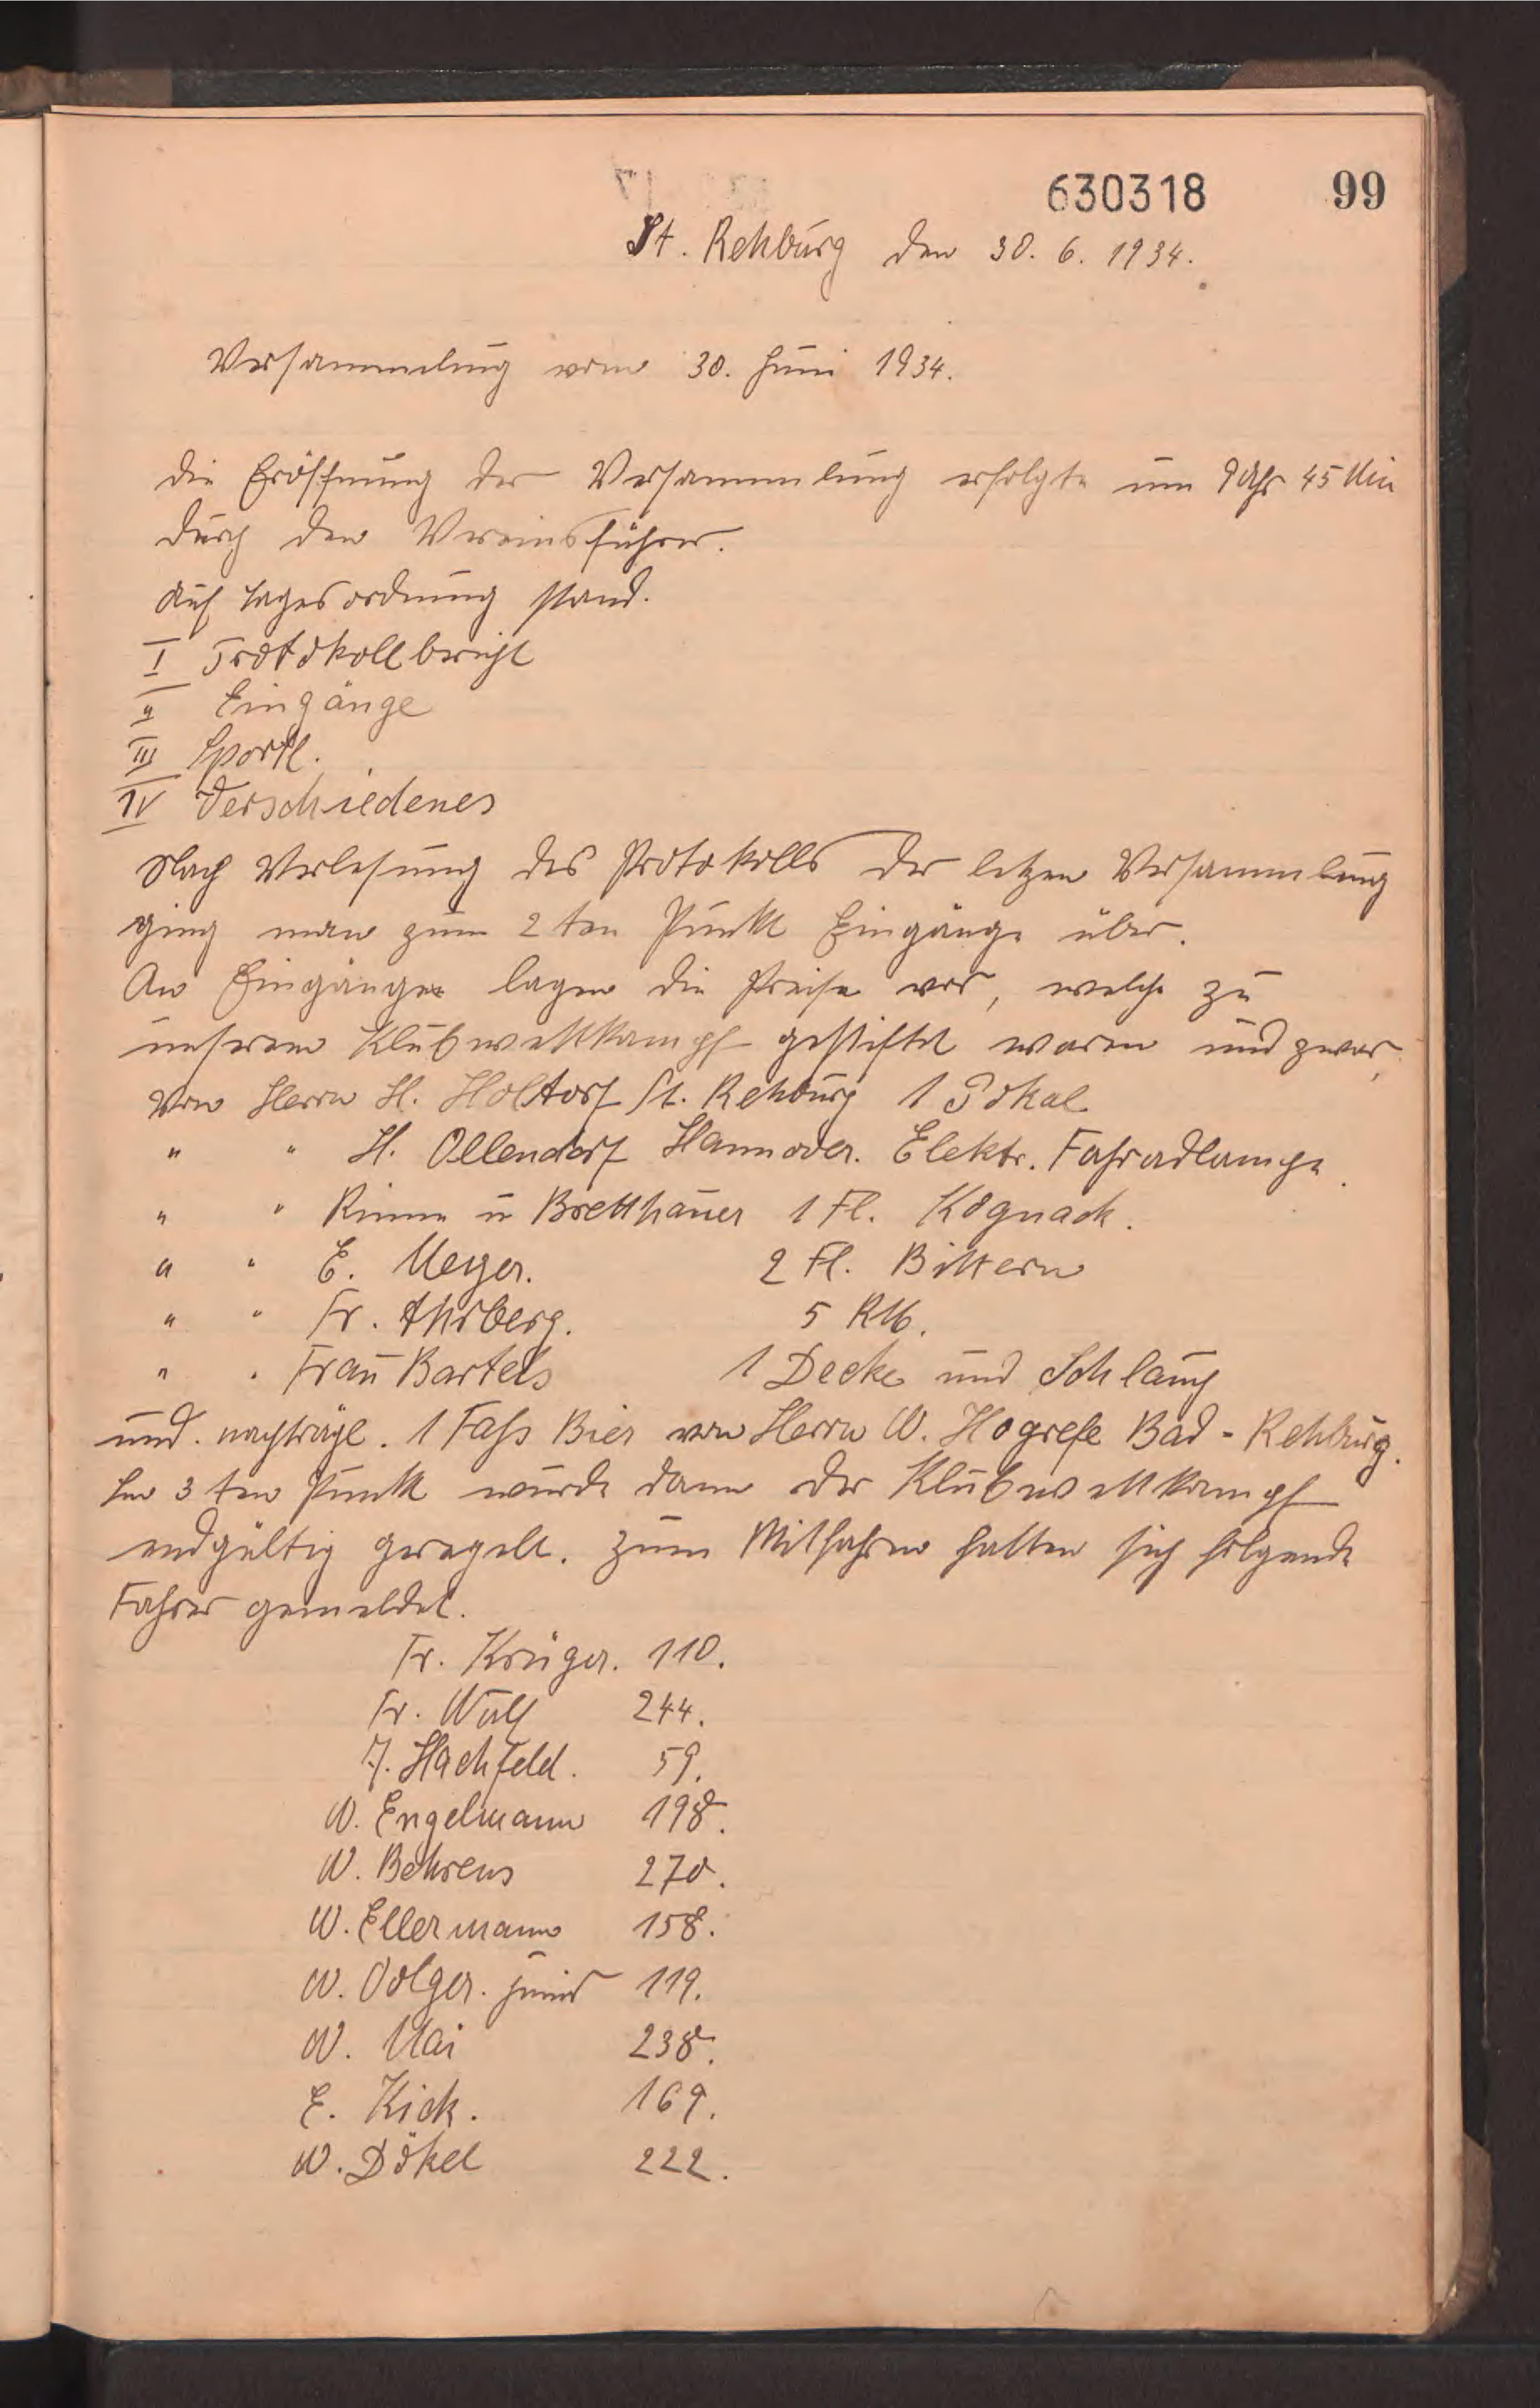 630318 99
St. Rehburg den 30. 6. 1934.
Versammelung vom 30. Juni 1934.
Die Eröffnung der Versammlung erfolgte um 9 Uhr 45 Min
durch den Vereinsführer.
Auf Tagesordnung stand.
I Protokollbericht
II Eingänge
III Sportl.
IV Verschiedenes
Nach Verlesung des Protokolls der letzen Versammlung
ging man zum 2ten Punkt Eingänge über.
An Eingänge lagen die Preise vor, welche zu
unserem Klubwettkampf gestiftet waren und zwar,
Von Herrn H. Holtorf St. Rehburg 1 Pokal
" " H. Ollendorf Hannover. Elektr. Fahradlampe.
" " Rimm u Bretthauer 1 Fl. Kognack.
" " E. Meyer. 2 Fl. Bittern
" " Fr. Ahrberg. 5 RM.
" " Frau Bartels 1 Decke und Schlauch
und. nachträgl. 1 Fass Bier von Herrn W. Hogrefe Bad-Rehburg.
Im 3ten Punkt wurde dann der Klubwettkampf
endgültig geregelt. Zum Mitfahren hatten sich folgende
Fahrer gemeldet.
Fr. Krüger. 110.
Fr. Wulf 244.
F. Hachfeld. 59.
W. Engelmann 198.
W. Behrens 270.
W. Ellermann 158.
W. Volger. junior 119.
W. Mai 238.
E. Kick. 169.
W. Dökel 222.